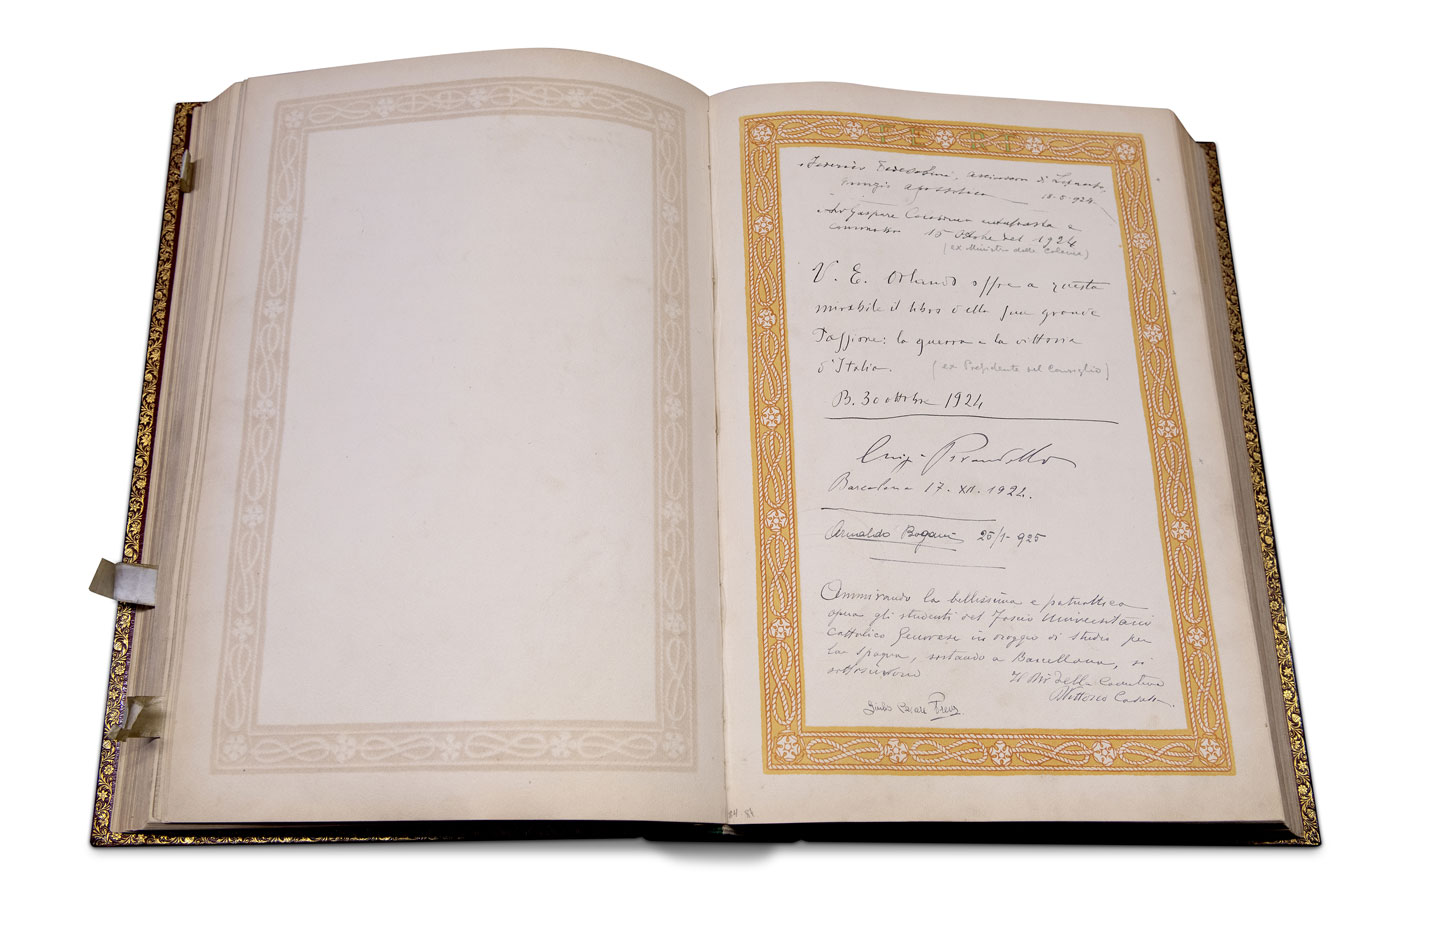 FERT
Federico Tedeschini, Arcivescovo di Lepanto,
Nunzio apostolico 18-5-924.
Gaspare Colosimo e
15 Ottobre del 1924
(ex Ministro delle Colonie)
V. E. Orlando offre a questo
mirabile il libro della sua grande
Passione: la guerra e la vittoria
d'Italia. (ex Presidente del Consiglio)
B. 30 ottobre 1924
Luigi Pirandello
Barcelona 17. XII. 1924.
Arnaldo 25/1-925
Ammirando la bellissima e patriottica
opera gli studenti del Fascio Universitario
Cattolico Genovese in viaggio di studio per
la Spagna, sostando a Barcellona, si
sottoscrivono Il Dir. della Comitiva
Vittorio
Giulio Cesare